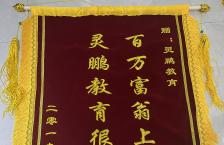 赠：灵鹏教育
百万富翁上
灵鹏教育很
二零一